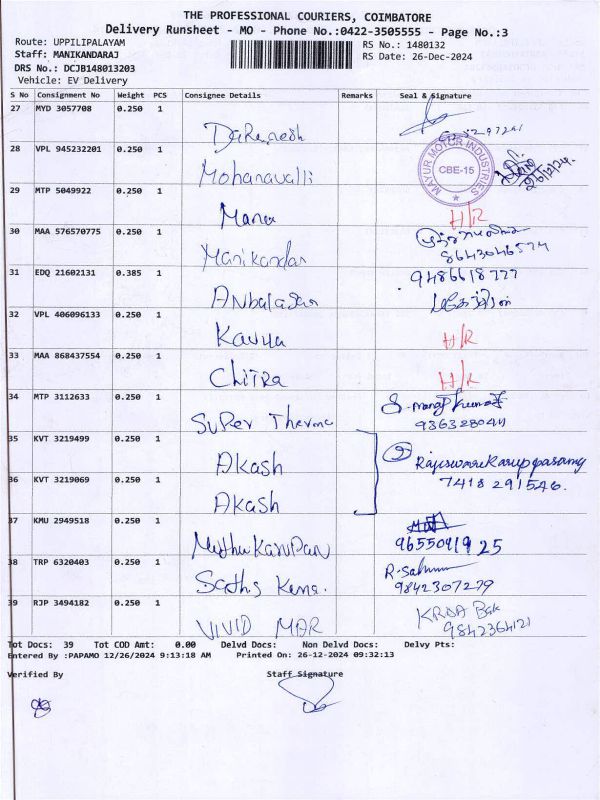 THE PROFESSIONAL COURIERS, COIMBATORE
Delivery Runsheet - MO - Phone No.:0422-3505555 - Page No.:3
Route: UPPILIPALAYAM
Staff: MANIKANDARAJ
DRS No.: DCJB148013203
Vehicle: EV Delivery
RS No.: 1480132
RS Date: 26-Dec-2024
S No Consignment No Weight PCS Consignee Details Remarks Seal & Signature
27 MYD 3057708 0.250 1
28 VPL 945232201 0.250 1 Mohanavalli
MAYUR MOTOR INDUSTRIES CBE-15
26/12/24
29 MTP 5049922 0.250 1 H/R
30 MAA 576570775 0.250 1 Manikandan 8643046574
31 EDQ 21602131 0.385 1 Anbalagan 9486618777
32 VPL 406096133 0.250 1 Kavya H/R
33 MAA 868437554 0.250 1 Chitra H/R
34 MTP 3112633 0.250 1 Super Therma
35 KVT 3219499 0.250 1 Akash
36 KVT 3219069 0.250 1 Akash 7418291546.
37 KMU 2949518 0.250 1 Muthu Karupan
38 TRP 6320403 0.250 1 9842307279
39 RJP 3494182 0.250 1 VIVID 9842364121
Tot Docs: 39 Tot COD Amt: 0.00 Delvd Docs: Non Delvd Docs: Delvy Pts:
Entered By :PAPAMO 12/26/2024 9:13:18 AM Printed On: 26-12-2024 09:32:13
Verified By Staff Signature